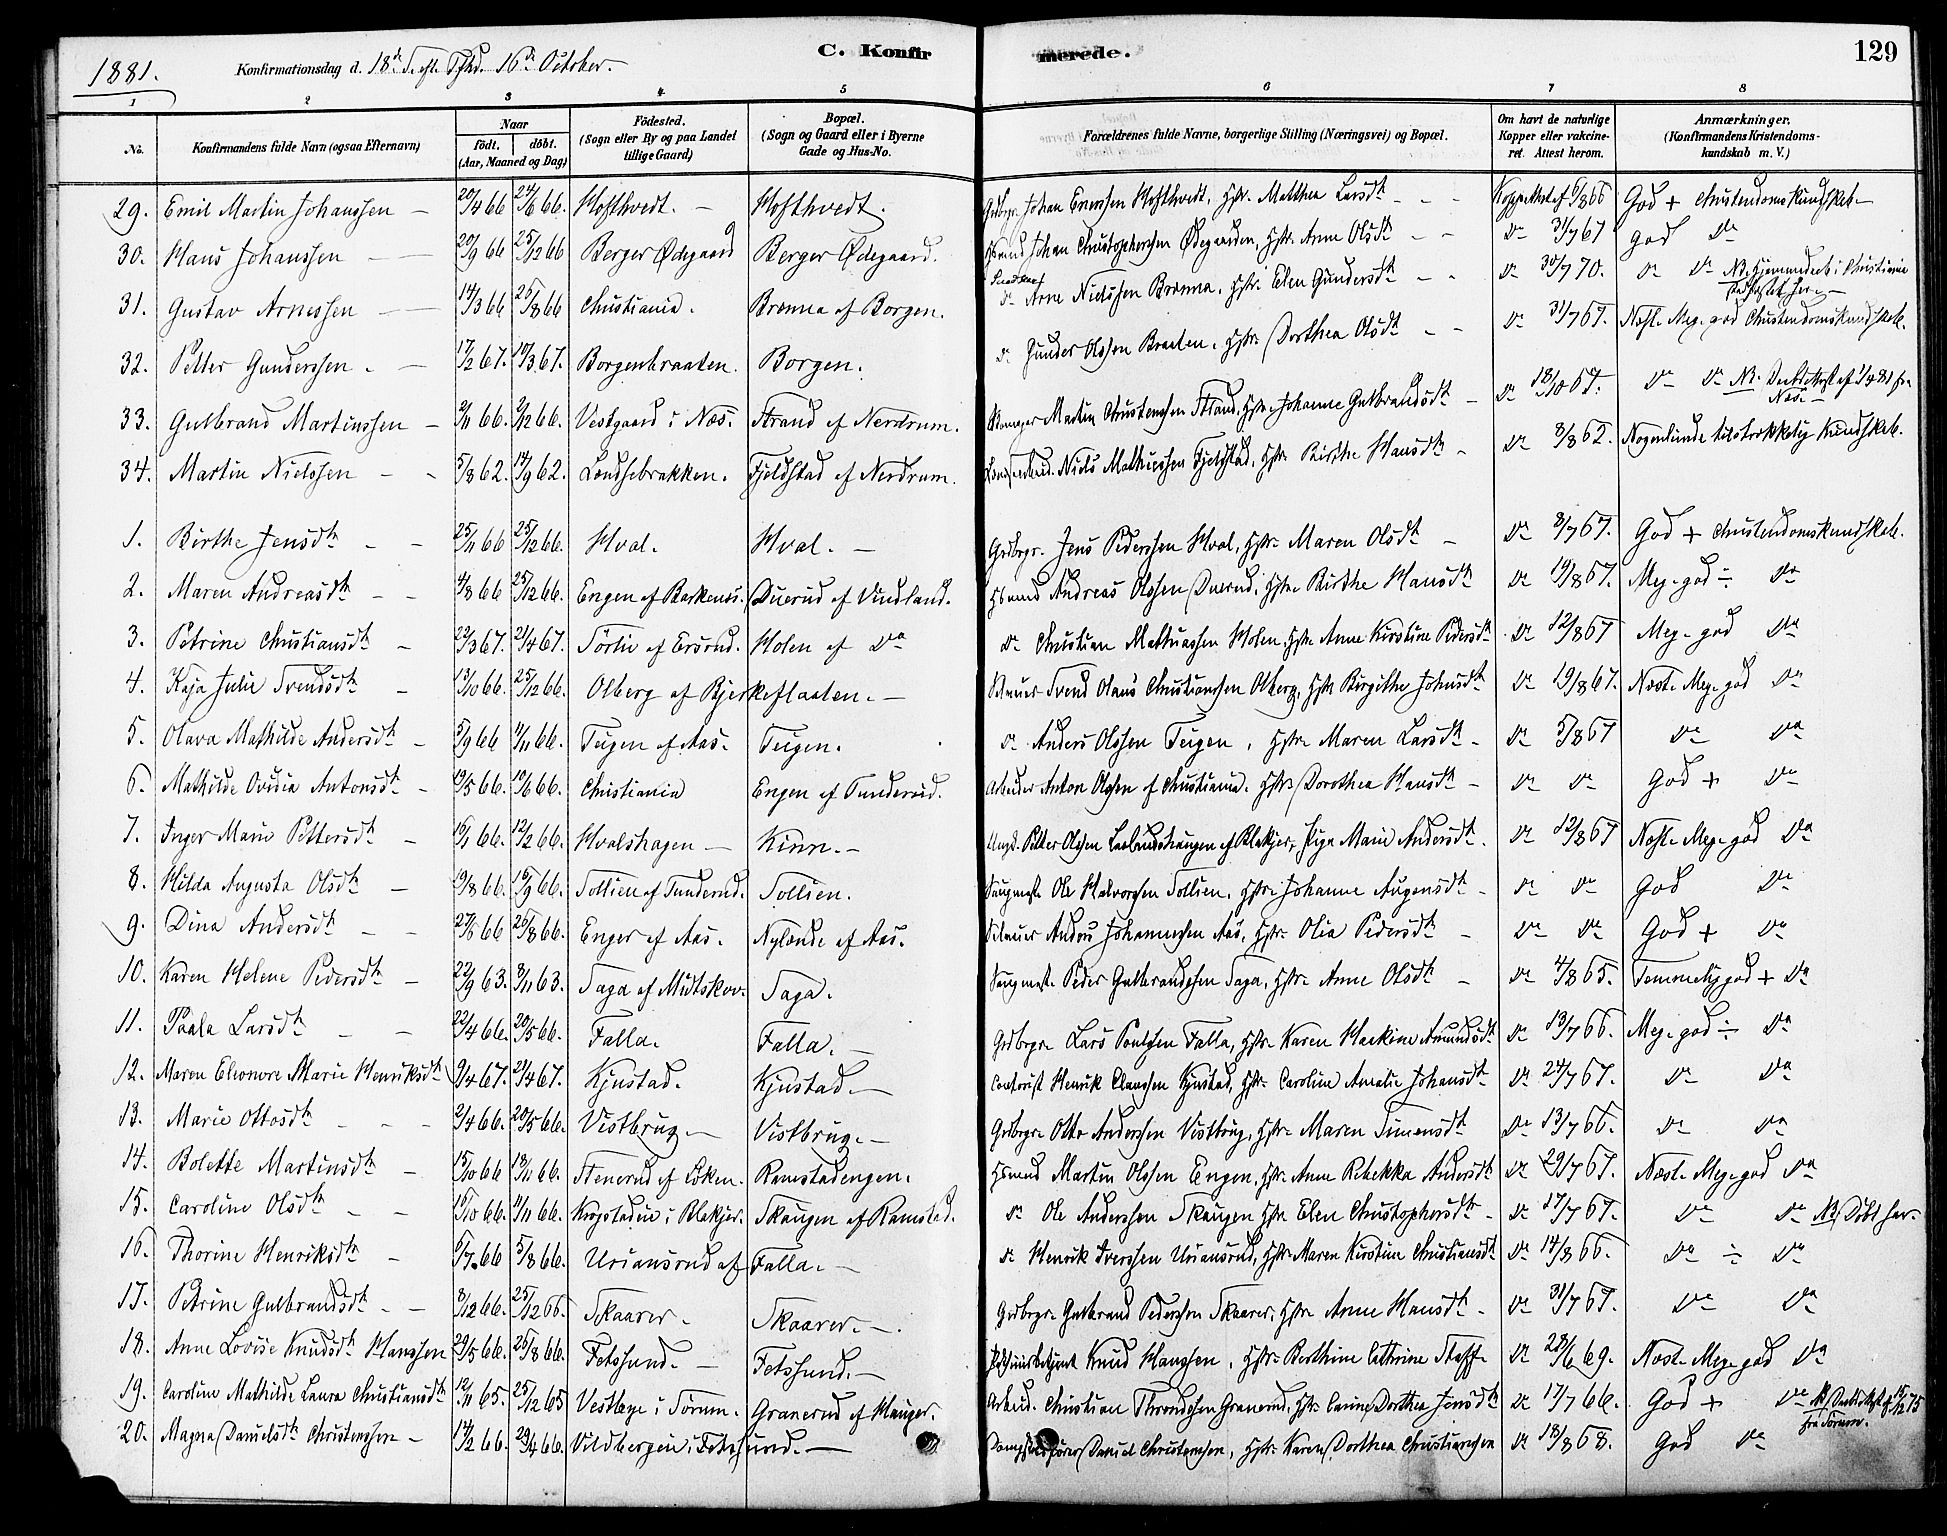 1881.
Konfirmationsdag d. 18de S. eft. Trfd. 16de October.
C. Konfirmerede.
129
1 2 3 4 5 6 7 8
No.
Konfirmandens fulde Navn (ogsaa Efternavn)
Naar
födt. döbt.
(Aar, Maaned og Dag)
Födested.
(Sogn eller By og paa Landet tillige Gaard)
Bopæl.
(Sogn og Gaard eller i Byerne Gade og Hus-No.
Forældrenes fulde Navne, borgerlige Stilling (Næringsvei) og Bopæl.
Om havt de naturlige Kopper eller vakcineret. Attest herom.
Anmærkninger.
(Konfirmandens Kristendomskundskab m. V.)
29. Emil Martin Johanssen 20/4 66 24/6 66. Hofthvedt. Hofthvedt. Gdbrgr. Johan Hofthvedt, Hstr. Matthea Larsdt. Koppeattest af God + Christendomskundskab.
30. Hans Johanssen 20/9 66 25/12 66 Berger Ødegaard Berger Ødegaard. Johan Christophersen Ødegaarden, Hstr. Anne Olsdt. do 31/7 67 God do
31. Gustav Arnessen 14/3 66 26/8 66 Christiania. Brænna af Borgen. do Arne Nielssen Brænna, Hstr. Elen Gundersdt. do 30/7 70. do do NB. Hjemmedøbt i Christiania
32. Petter Gunderssen. 17/2 67. 10/3 67. Borgenbraaten. Borgen. do Gunder Olssen Braaten, Hstr. Dorthea Olsdt. do 31/7 67. Næst. Meg. god Christendomskundskab.
33. Gulbrand Martinssen 2/11 66. 2/12 66. Vestgaard i Næs. Strand af Nerdrum. Martin Christenssen Strand, Hstr. Johanne Gulbrandsdt. do 18/10 67. do do NB.
34. Martin Nielssen 5/8 62. 14/9 62. Lundsebrakken. Fjeldstad af Nerdrum. Niels Mathiessen Fjeldstad, Hstr. Birthe Hansdt. do 8/8 62. Nogenlunde tilstrækkelig Kundskab.
1. Birthe Jensdt. 25/11 66 25/12 66. Hval. Hval. Gdbrgr. Jens Pederssen Hval, Hstr. Maren Olsdt. do 8/7 67. God + Christendomskundskab.
2. Maren Andreasdt. 4/8 66 25/12 66. Engen af Duerud af Vindland. Andreas Olssen Duerud, Hstr. Birthe Hansdt. do 19/8 67. Meg. god ÷ do
3. Petrine Christiansdt. 22/3 67. 21/4 67. Tørlie af Ersrud. Holen af do do Christian Mathiassen Holen, Hstr. Anne Kirstine Pedersdt. do 12/8 67 Meg. god do
4. Kaja Julie Svendsdt. 13/10 66. 25/12 66. Olberg af Bjerkeflaaten. Svend Olaus Christianssen Olberg, Hstr. Birgithe Johnsdt. do 19/8 67. Næst. Meg. god do
5. Olava Mathilde Andersdt. 5/9 66 11/11 66. Teigen af Aas. Teigen. do Anders Olssen Teigen, Hstr. Maren Larsdt. do 5/8 67 do do
6. Mathilde Ovidia Antonsdt. 19/5 66. 10/6 66. Christiania Engen af Tunderud. Arbeider Anton Olssen af Christiania. Hstr. Dorothea Hansdt. do do God + do
7. Inger Marie Pettersdt. 16/1 66. 12/2 66. Hvalshagen Kinn. Ungk. Petter Olssen af Blakjer, Pige Marie Andersdt. do 12/8 67 Næst. Meg. god do
8. Hilda Augusta Olsdt. 19/8 66. 16/9 66. Sollien af Tunderud. Sollien. Ole Halvorssen Sollien, Hstr. Johanne do do God do
9. Dina Andersdt. 27/6 66 26/8 66. Enger af Aas. Nylænde af Aas. Anders Johannessen Aas, Hstr. Olia Pedersdt. do do God + do
10. Karen Helene Pedersdt. 22/9 63. 8/11 63. Saga af Midtskov. Saga. Peder Gulbrandssen Saga, Hstr. Anne Olsdt. do 4/8 65. Temmelig god + do
11. Paala Larsdt. 22/4 66. 20/5 66. Falla. Falla. Gdbrgr. Lars Poulssen Falla, Hstr. Karen Amundsdt. do 13/7 66. Meg. god ÷ do
12. Maren Eleonore Marie Henriksdt. 9/4 67. 21/4 67. Kjustad. Kjustad. Contorist Henrik Claussen Kjustad, Hstr. Caroline Amalie Johansdt. do 24/7 67. do do
13. Marie Ottosdt. 2/4 66. 20/5 66. Vestbrug. Vestbrug. Gdbrgr. Otto Anderssen Vestbrug, Hstr. Maren Simensdt. do 13/7 66. do do
14. Bolette Martinsdt. 15/10 66 18/11 66. Stenerud af Løken. Ramstadengen. Martin Olssen Engen, Hstr. Anne Rebekka Andersdt. do 29/7 67. Næst. Meg. god do
15. Caroline Olsdt. 16/10 66. 11/11 66. Krogstadiu i Blakjer. Skaugen af Ramstad. do Ole Anderssen Skaugen, Hstr. Elen Christophersdt. do 17/7 67. do do NB. Døbt her.
16. Thorine Henriksdt. 6/7 66 5/8 66. Uriansrud af Falla. do Henrik Iverssen Uriansrud, Hstr. Maren Kirstine Christiansdt. do 14/8 66. do ÷ do
17. Petrine Gulbrandsdt. 8/12 66. 25/12 66. Skaarer. Skaarer. Gdbrgr. Gulbrand Pederssen Skaarer, Hstr. Anne Hansdt. do 31/7 67. do do
18. Anne Lovise Knudsdt. Hanssen 29/5 66. 26/8 66. Fetsund. Fetsund. Knud Hanssen, Hstr. Berthine Cathrine Staff. do 28/6 69. Næst. Meg. god do
19. Caroline Mathilde Laura Christiansdt. 12/11 65. 25/12 65 Vestbye i Sørum. Granerud af Hauger. Arbeid. Christian Throndssen Granerud, Hstr. Dorthea Jensdt. do 17/7 66. God + do NB. fra Sørum.
20. Magna Danielsdt. Christenssen 14/2 66. 29/4 66. Vildbergen i Fetsund. Daniel Christenssen, Hstr. Karen Dorthea Christianssen do 18/8 68. God do